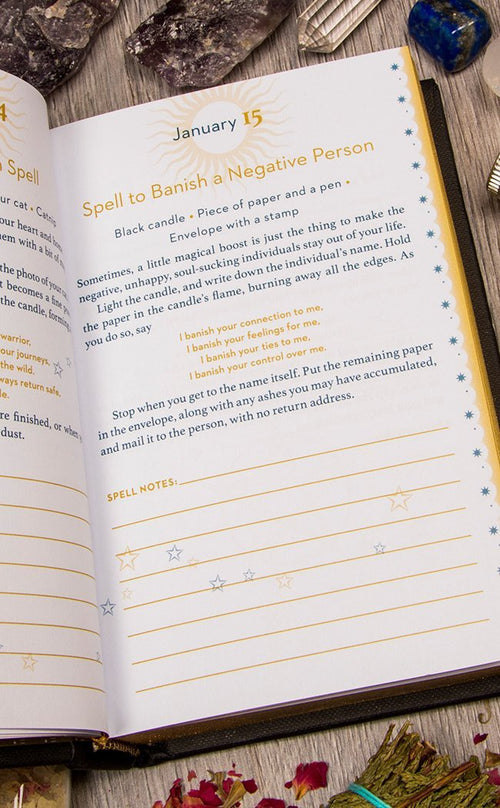 4
n Spell
ur cat • Catni
your heart and ho
hem with a bit of
the photo of your
t becomes a fine p
the candle, forming
warrior,
your journeys,
the wild.
ways return safe,
le.
re finished, or when
dust.
January 15
Spell to Banish a Negative Person
Black candle • Piece of paper and a pen •
Envelope with a stamp
Sometimes, a little magical boost is just the thing to make the
negative, unhappy, soul-sucking individuals stay out of your life.
Light the candle, and write down the individual's name. Hold
the paper in the candle's flame, burning away all the edges. As
you do so, say
I banish your connection to me,
I banish your feelings for me,
I banish your ties to me,
I banish your control over me.
Stop when you get to the name itself. Put the remaining paper
in the envelope, along with any ashes you may have accumulated,
and mail it to the person, with no return address.
SPELL NOTES: